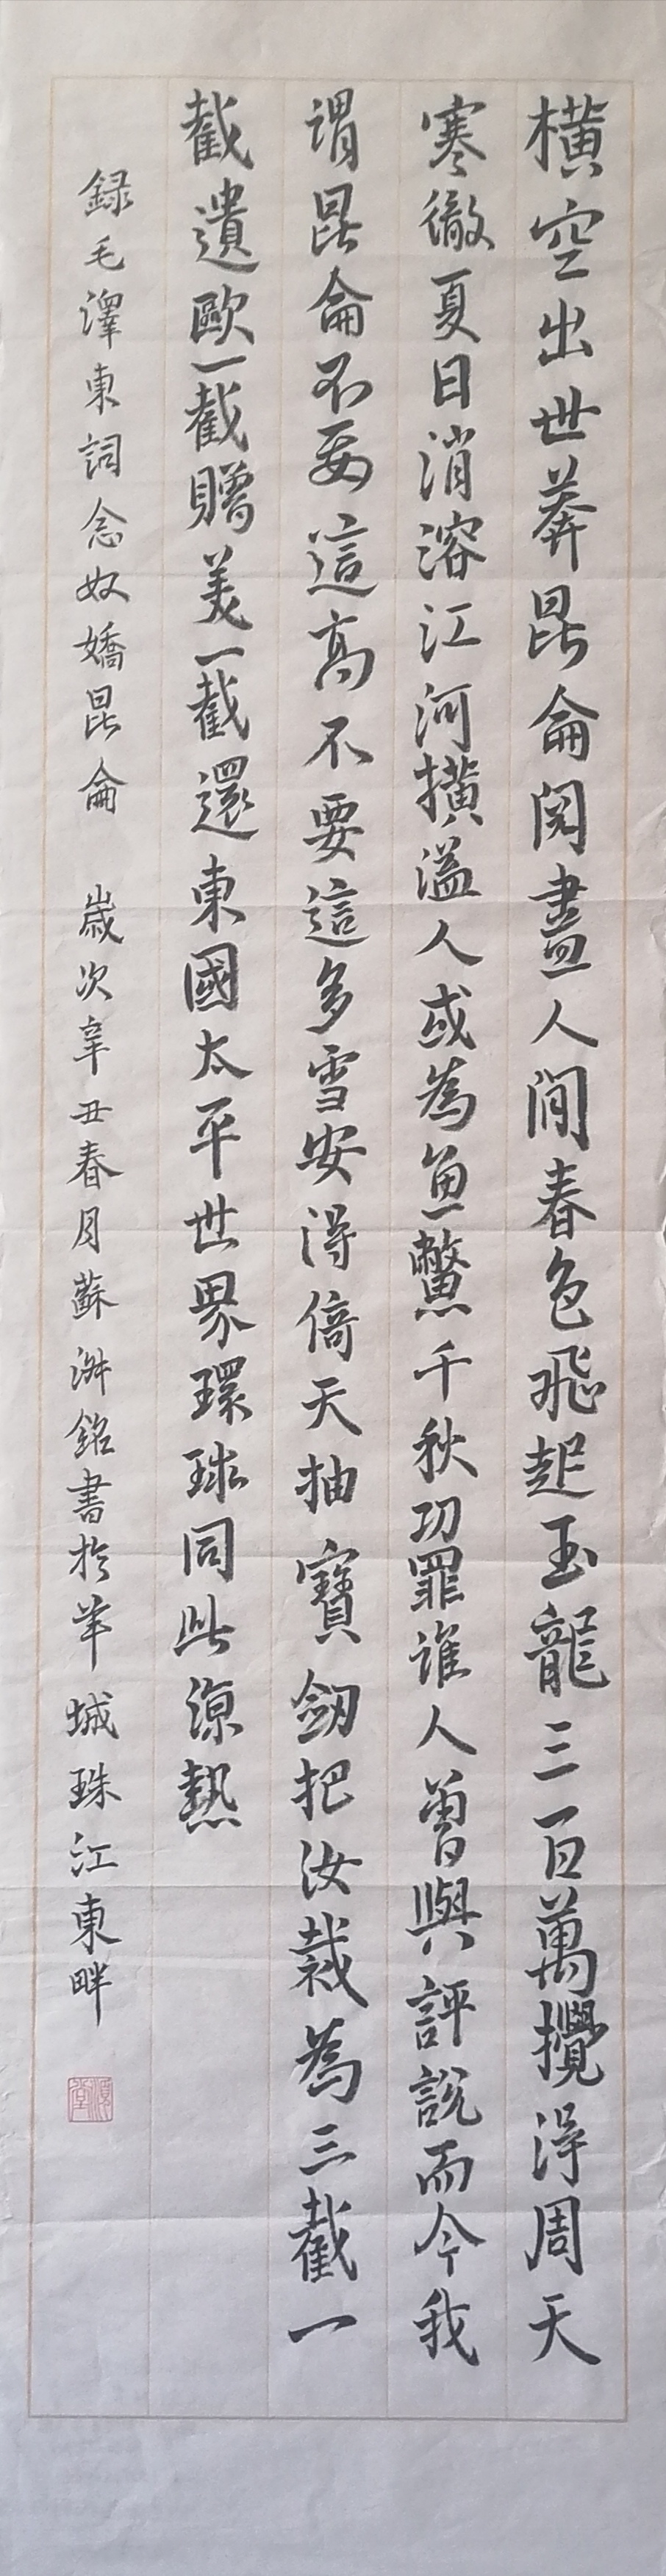 橫空出世莽昆侖閱盡人間春色飛起玉龍三百萬攪得周天
寒徹夏日消溶江河橫溢人或為魚鱉千秋功罪誰人曾與評說而今我
謂昆侖不要這高不要這多雪安得倚天抽寶劒把汝裁為三截一
截遺歐一截贈美一截還東國太平世界環球同此涼熱
録毛澤東詞念奴嬌昆侖 歲次辛丑春月蘇洲銘書於羊城珠江東畔